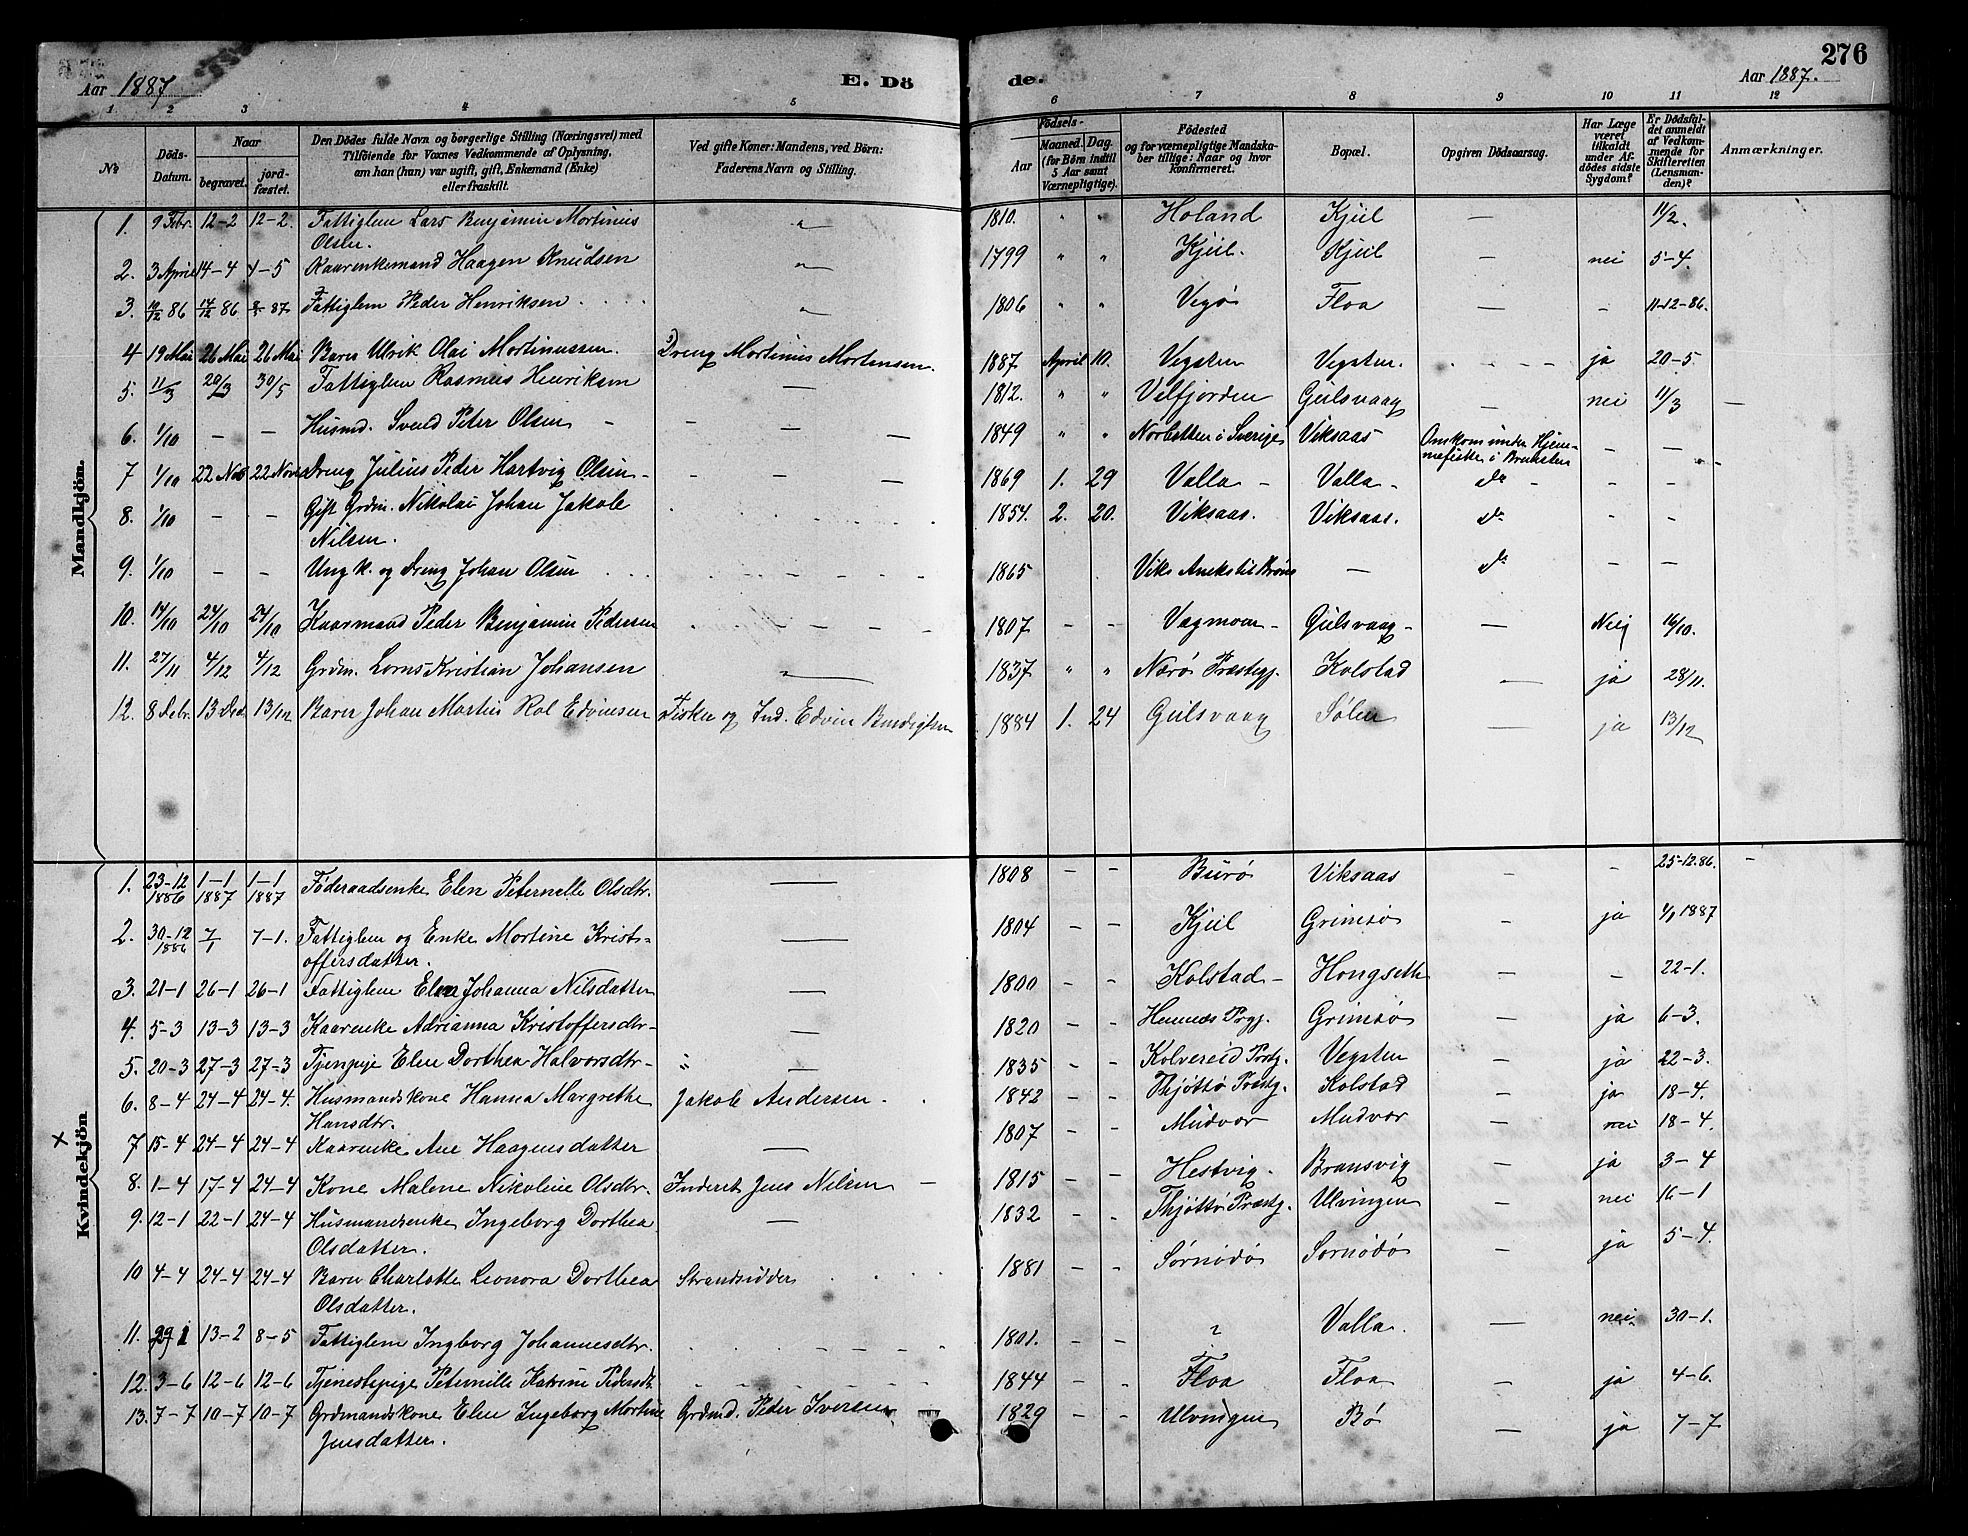 276
Aar 1887
E. Dö
de.
Aar 1887.
1 2 3 4 5 6 7 8 9 10 11 12
Nº
Döds-
Datum.
Naar
begravet.
jord-
fæstet.
Den Dödes fulde Navn og borgerlige Stilling (Næringsvei) med
Tilföiende for Voxnes Vedkommende af Oplysning,
om han (hun) var ugift, gift, Enkemand (Enke)
eller fraskilt.
Ved gifte Koner: Mandens, ved Börn:
Faderens Navn og Stilling.
Födsels-
Aar
Maaned.
Dag.
(for Börn indtil
5 Aar samt
Værnepligtige).
Födested
og for værnepligtige Mandska-
ber tillige: Naar og hvor
konfirmeret.
Bopæl.
Opgiven Dödsaarsag.
Har Læge
været
tilkaldt
under Af-
dödes sidste
Sygdom?
Er Dödsfal-
det anmeldt
af Vedkom-
mende for
Skifteretten
(Lensman-
den)?
Anmærkninger.
Mandkjön.
1. 9 Febr. 12-2 12-2. Fattiglem Lars Benjamin Mortinus 1810. " " Holand Kjul — 11/2.
Olsen.
2. 3 April 14-4 4-5 Kaarenkemand Haagen Knudsen 1799 " " Kjul. Kjul — nei 5-4.
3. 10/12 86 14/12 86 87 Fattiglem Peder Henriksen 1806 " " Vegø Floa — - 11-12-86.
4 19 Mai 26 Mai 26 Mai Barn Ulrik Olai Mortinussen. Dreng Mortinus Mortensen. 1887 April 10. Vegsten Vegsten. ja 20-5.
5. 11/3 20/3 30/5 Fattiglem Rasmus Henriksen — 1812. " " Velfjorden Gulsvaag — nei 11/3 —
6. 1/10 — — Husmd. Svend Peter Olsen — 1849 " " Norbotten i Sverige Viksaas Omkom under Hjem-
mefiske i — —
7 1/10 22 Nov 22 Nov Dreng Julius Peder Hartvig Olsen — 1869 1. 29 Valla - Valla - do - -
8. 1/10 — — Gift Grdm. Nikolai Johan Jakob 1854. 2. 20. Viksaas. Viksaas. do - -
Nilsen.
9. 1/10 - - Ung k. og Dreng Johan Olsen 1865 Viks Aneks til Brønø — do - -
10. 14/10 24/10 24/10 Kaarmand Peder Benjamin Pedersen 1807 - - Vagmoen - Gulsvaag - — Neij 16/10.
11. 27/11 4/12 4/12 Grdm. Lorns Kristian Johansen 1837 " " Nærø Præstegj. Kolstad — ja 28/11.
12. 8 Debr. 13 Dec. 13/12 Barn Johan Martin Rol Edvinsen Fisker og Ind. Edvin 1884 1. 24 Gulsvaag Sølen — ja 13/12
Kvindekjön
×
1. 23-12 1-1 1-1 Føderaadsenke Elen Peternelle Olsdtr. — 1808 - - Burø Viksaas - - 25-12.86. —
1886 1887 1887
2. 30-12 7/1 7-1. Fattiglem og Enke Mortine Krist- — 1804 - - Kjul Grimsø - ja 4/1 1887
1886 offersdatter.
3. 21-1 26-1 26-1 Fattiglem Elen Johanna Nilsdatter — 1800 - - Kolstad - Hongseth — - 22-1.
4. 5-3 13-3 13-3 Kaarenke Adrianna Kristoffersdtr - — 1820 - - Hemnæs Prgj. Grimsø - ja 6-3.
5. 20-3 27-3 27-3 Tjenpige Elen Dorthea Halvorsdtr - " — 1835 - - Kolvereid Prstgj. Vegsten - ja 22-3.
6. 8-4 24-4 24-4. Husmandskone Hanna Margrethe Jakob Andersen. 1842 - - Thjøttø Præstgj. Kolstad - ja 18-4.
Hansdtr.
7 15-4 24-4 24-4 Kaarenke Ane Haagensdatter — 1807 - - Mudvor Mudvor - nei 18-4.
8. 1-4 17-4 24-4 Kone Malene Nikoline Olsdtr. Inderst Jens Nilsen - 1815 - Hestvig. Bransvig — ja 3-4
9. 12-1 22-1 24-4 Husmandsenke Ingeborg Dorthea — 1832 - - Thjøttø Præstgj. Ulvingen - nei 16-1
Olsdatter.
10 4-4 24-4 24-4 Barn Charlotte Leonora Dorthea Strandsidder 1881 - - Sørnødø Sørnødø - ja 5-4.
Olsdatter.
11. 29 1 13-2 8-5 Fattiglem Ingborg Johannesdtr. 1801. - - ? Valla. — nei. 30-1.
12. 3-6 12-6 12-6 Tjenestepige Peternille Katrine Pedersdt. 1844 - - Floa Floa — ja 4-6.
13. 7-7 10-7 10-7 Grdmandskone Elen Ingeborg Mortine Grdmd. Peder Iversen 1829 - - Ulvingen Bø — ja 7-7
Jensdatter.